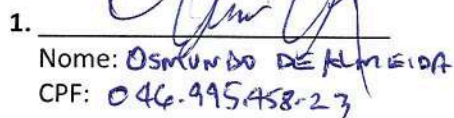 1.
Nome: OSMUNDO DE ALMEIDA
CPF: 046.995.458-23